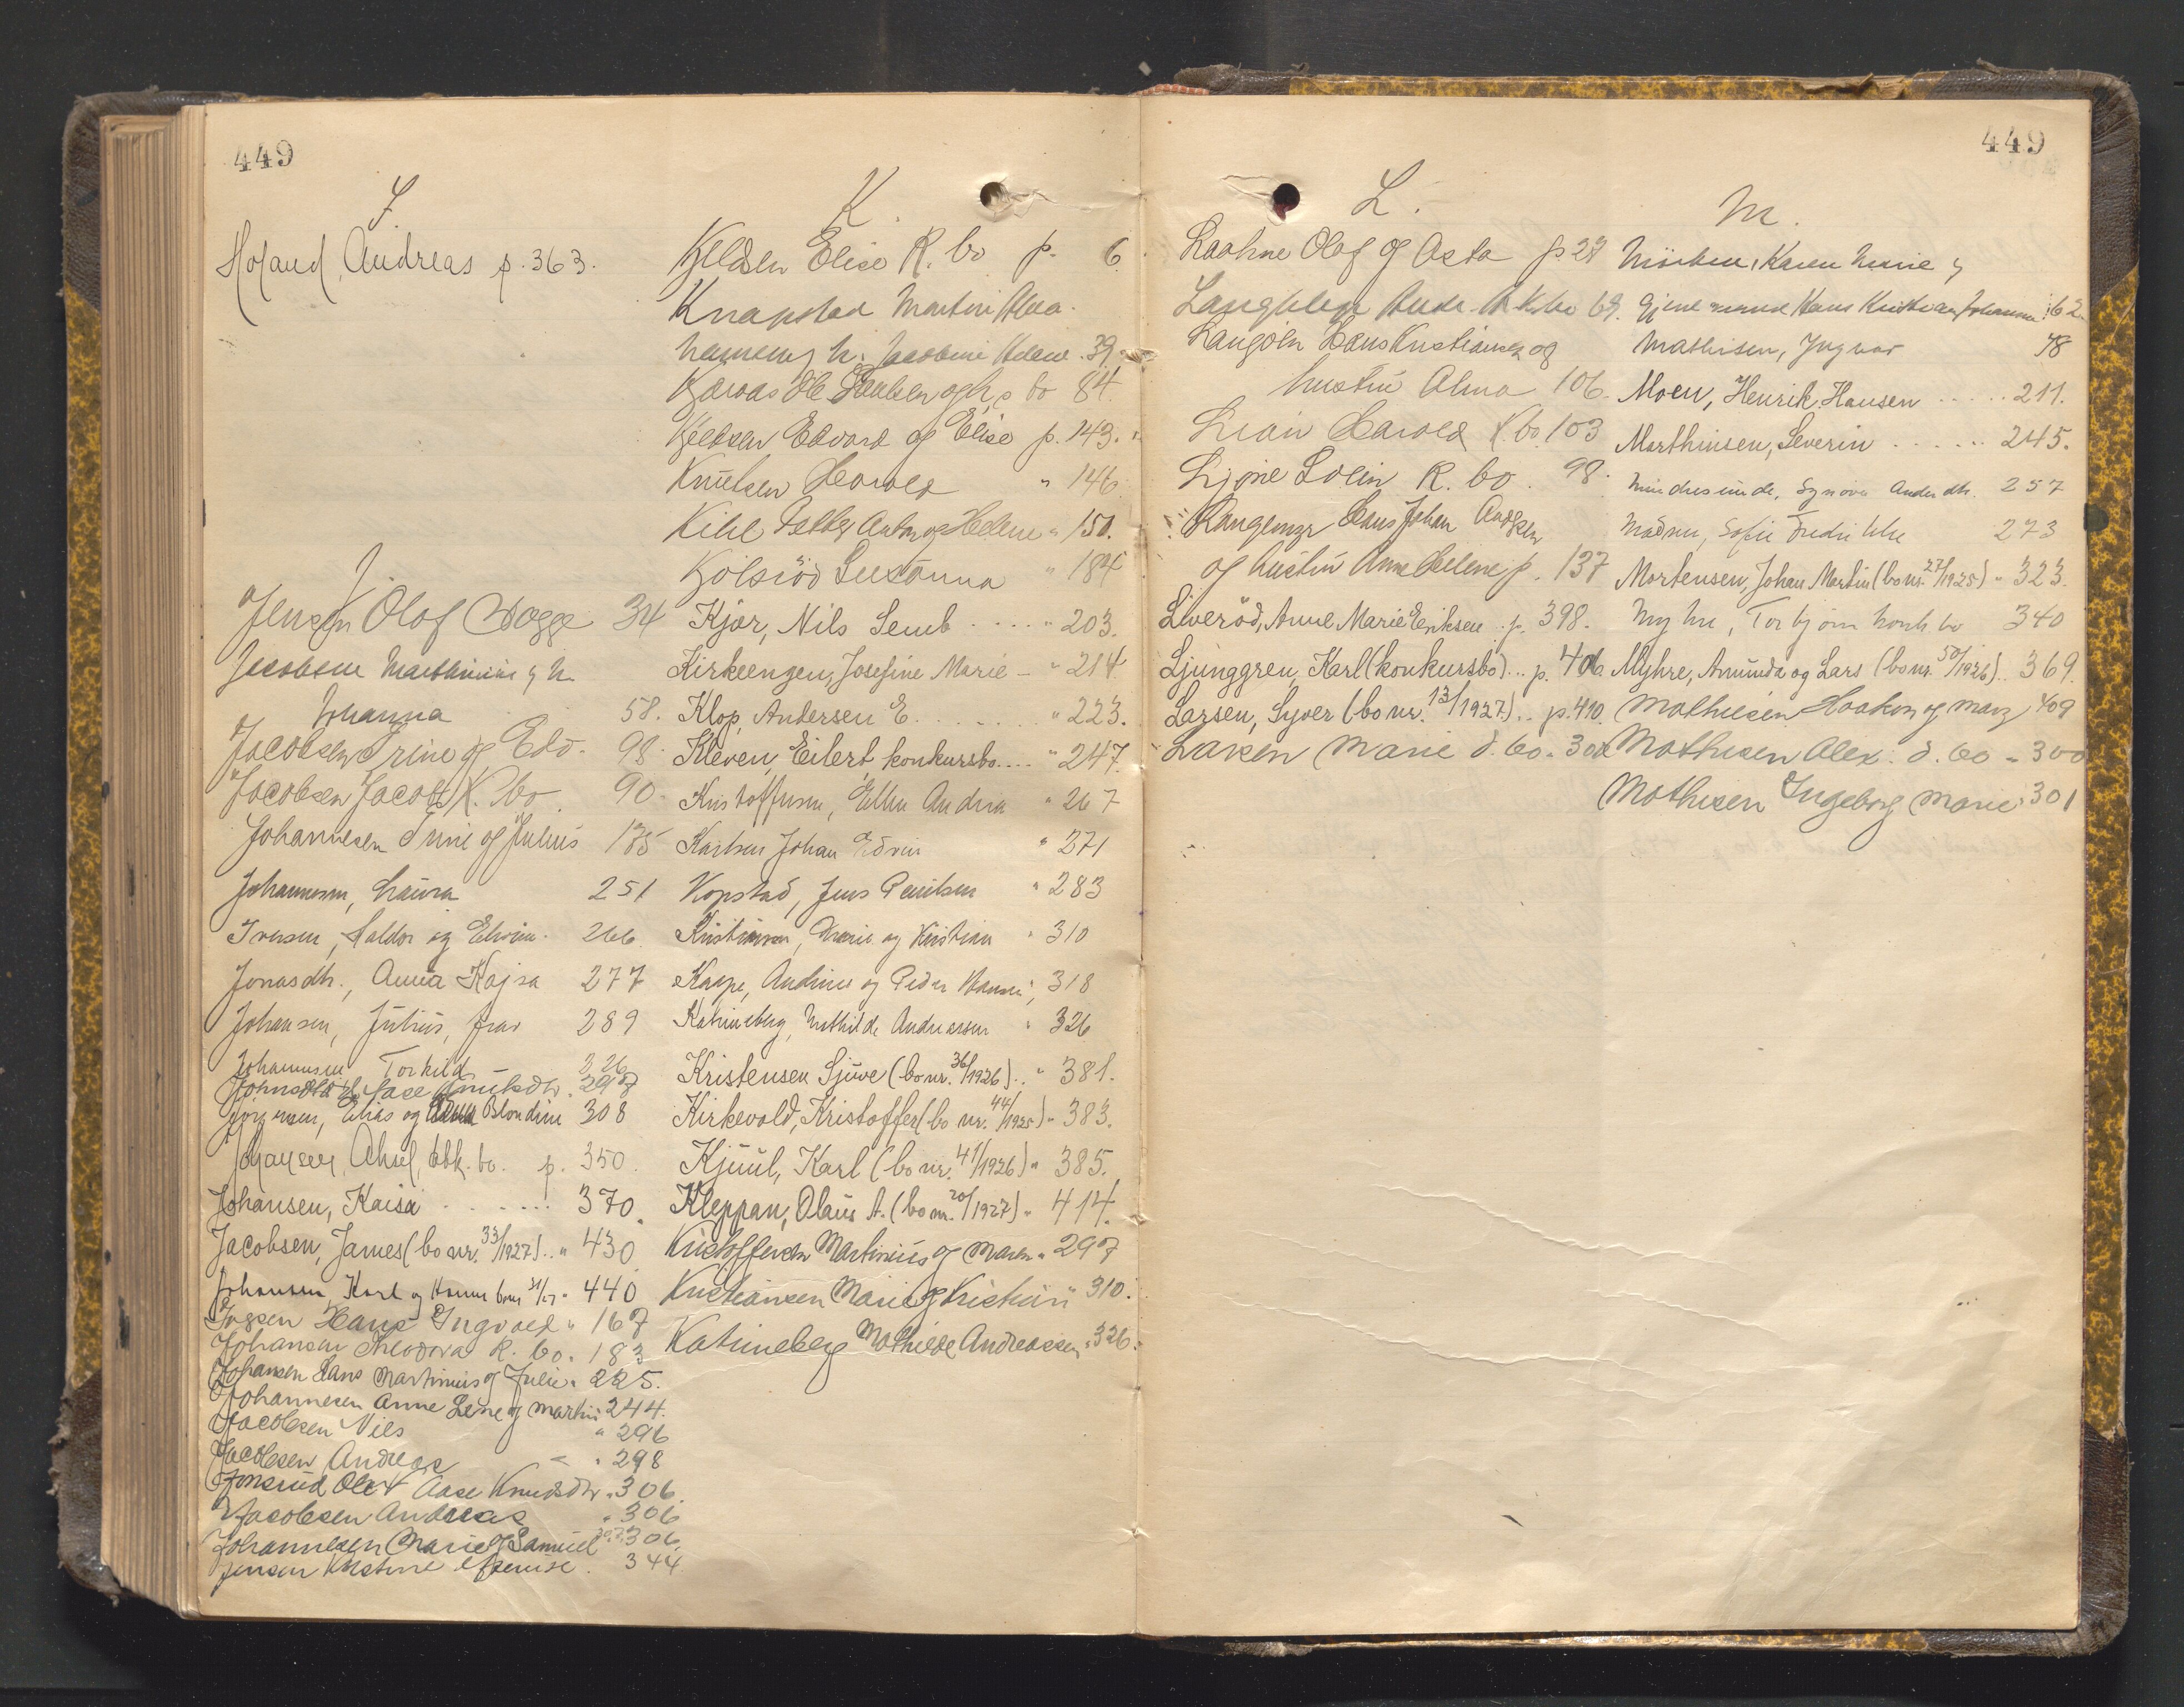 449
J
Hofand, Andreas p. 363.
J.
Jensen Olof Bogge 34
Jacobsen Marthinius og h.
Johanna 58.
Jacobsen Trine og Edv. 98.
Jacobsen Jacob K. bo. 90.
Johannesen Trine og Julius 135
Johannesen, Laura 251
Iversen, Haldor og Elvine 266.
Jonasdtr., Anna Kajsa 277
Johansen, Julius, frav 289
Johannesen Torkild 326
Aase Knutsdtr. 297
Jörgensen, Elias og Blondine 308
Johansen, Aksel, bo. p. 350.
Johansen, Kaisa ....... 370.
Jacobsen, James (bo nr. 33/1927) .. " 430
Johansen, Karl og Hanna bo nr 31/27 " 440
Hans Ingvald " 167
Johansen Theodora K. bo. " 183
Johansen Hans Martinius og Julie " 225.
Johannesen Anne Lene og Martin " 244.
Jacobsen Nils " 296
Jacobsen Andreas " " 298
Jonsrud Ole & Aase Knudsdtr " 306.
Jacobsen Andreas " 306
Johannesen Marie og Samuel 307. 306.
Jensen Kristine 344
K.
Kjeldsen Elise R. bo p. 6
Knapstad Martin Alva.
h. Jacobine Helene . 39.
Ole bo 84.
Kjeldsen Edvard og Elise p. 143.
Knutsen Harald " 146.
Kihl Anton og Helene " 150.
Kjölsröd Susanna " 184
Kjær, Nils Semb ..... " 203.
Kirkeengen, Josefine Marie – " 214
Klop, Andersen E. ....... " 223.
Kleven, Eilert, konkursbo .... " 247.
Kristoffersen, Ellen Andrea " 267
Karlsen Johan Edvin " 271
Kopstad, Jens Paulsen " 283
Kristiansen, Marie og Kristian " 310
Kaspe, Andrine og Peder Hansen " 318
Katrineberg, Mathilde Andreassen " 326
Kristensen Sjuve (bo nr. 36/1926) .. " 381.
Kirkevold, Kristoffer (bo nr. 44/1925) " 383.
Kjuul, Karl (bo nr. 41/1926) " 385.
Kleppan, Olaus A. (bo nr. 20/1927) " 414.
Kristoffersen Martinius og Maren " 297
Kristiansen Marie og Kristian " 310.
Katrineberg Mathilde Andreassen " 326.
449
L.
Laahne Olaf og Asta p. 27
bo 69.
Langöen Hans Kristiansen og
hustru Alma 106.
Lian Harald K. bo. 103
R. bo. 98.
Hans Johan
og hustru Anne Helene p. 137
Liveröd, Anne Marie Eriksen .. p. 398.
Ljunggren, Karl (konkursbo) ... p. 406.
Larsen, Syver (bo nr. 13/1927) .. p. 410.
Larsen Marie d. bo. " 302
M.
Karen Marie og
Hans Kristian Johannsen 162
Mathisen, Ingvar 78
Moen, Henrik Hansen ..... 211.
Marthinsen, Severin ...... 245.
Mindresunde, Synöve Andersdtr. 257
Madsen, Sofie Fredrikke 273
Mortensen, Johan Martin (bo nr. 27/1925) " 323.
Myhre, Torbjörn konk. bo 340
Myhre, Amunda og Lars (bo nr. 50/1926) .. 369.
Mathiesen Haakon og Mary 409
Mathisen Alex. d. bo " 300
Mathisen Ingeborg Marie " 301